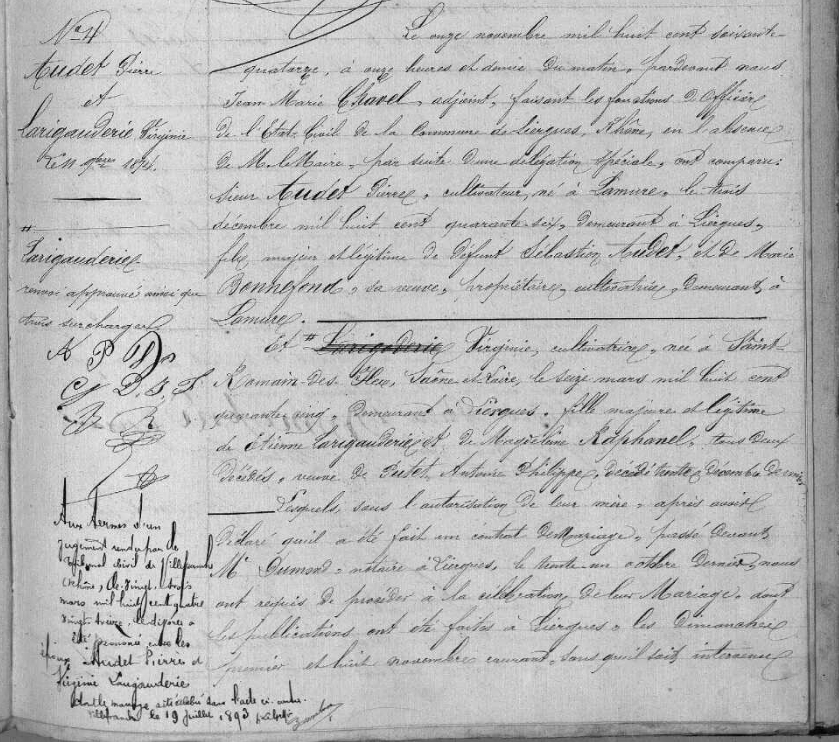 N° 4
Audet Pierre
et
Larigauderie Virginie
Le 11 9bre 1874.
Larigauderie
renvoi approuvé ainsi que
trois surcharges
A P
Aux termes d'un
jugement rendu par le
tribunal civil de Villefranche
(Rhône), le vingt-trois
mars mil huit cent quatre
vingt treize, le divorce a
été prononcé entre les
époux Audet Pierre et
Virginie Larigauderie
dont le mariage a été célébré dans l'acte ci-contre.
Villefranche le 19 Juillet 1893
Le onze novembre mil huit cent soixante-
quatorze, à onze heures et demie du matin, pardevant nous
Jean Marie Chavel, adjoint, faisant les fonctions d'officier
de l'Etat-Civil de la Commune de Liergues, Rhône, en l'absence
de M. le Maire, par suite d'une délégation spéciale, ont comparu:
Sieur Audet Pierre, cultivateur, né à Lamure, le trois
décembre mil huit cent quarante-six, demeurant à Liergues,
fils majeur et légitime de défunt Sébastien Audet, et de Marie
Bonnefond, sa veuve, propriétaire, cultivatrice, demeurant à
Lamure.
Et # Larigoderie Virginie, cultivatrice, née à Saint-
Romain-des-Iles, Saône et Loire, le seize mars mil huit cent
quarante cinq, demeurant à Liergues, fille majeure et légitime
de Etienne Larigauderie et de Magdeleine Raphanel, tous deux
décédés, veuve de Antoine Philippe, décédé trente décembre
Lesquels, sous l'autorisation de leur mère, après avoir
déclaré qu'il a été fait un contrat de Mariage, passé devant
Me Dumond, notaire à Liergues, le trente-un octobre dernier, nous
ont requis de procéder à la célébration de leur Mariage, dont
les publications ont été faites à Liergues, les Dimanches
premier et huit novembre courant, sans qu'il soit intervenu